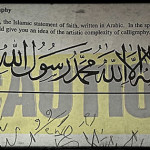 aphy
, the Islamic statement of faith, written in Arabic. In the sp
ld give you an idea of the artistic complexity of calligraphy.
إله إلا الله محمد رسول الله
AUTIO